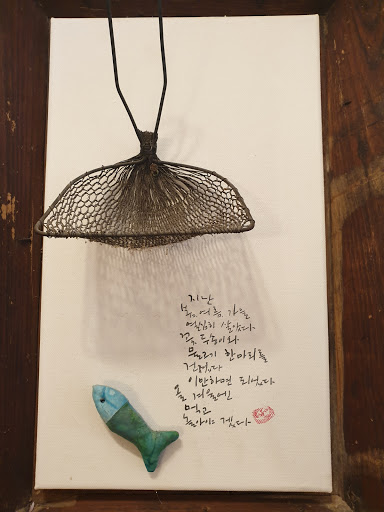 지난
봄, 여름, 가을
열심히 살았다.
국화 두 송이와
물고기 한 마리를
건졌다
이만하면 되었다
올 겨울에는
먹고
놀아야 겠다.